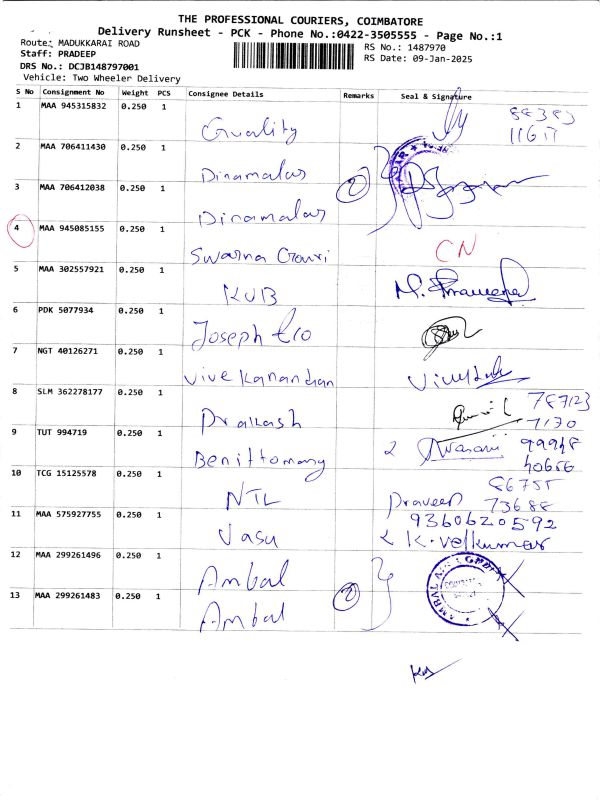 THE PROFESSIONAL COURIERS, COIMBATORE
Delivery Runsheet - PCK - Phone No.:0422-3505555 - Page No.:1
Route: MADUKKARAI ROAD
RS No.: 1487970
Staff: PRADEEP
RS Date: 09-Jan-2025
DRS No.: DCJB148797001
Vehicle: Two Wheeler Delivery
S No Consignment No Weight PCS Consignee Details Remarks Seal & Signature
1 MAA 945315832 0.250 1 Guality 88383
11611
2 MAA 706411430 0.250 1 Dinamalar
3 MAA 706412038 0.250 1 Dinamalar 2
4 MAA 945085155 0.250 1 Swarna Gowri CN
5 MAA 302557921 0.250 1 KUB
6 PDK 5077934 0.250 1 Joseph
7 NGT 40126271 0.250 1 Vivekanandan
8 SLM 362278177 0.250 1 Prakash 787123
7170
9 TUT 994719 0.250 1 Benittomany 2 99948
40656
10 TCG 15125578 0.250 1 NTL Praveen 86755
73688
11 MAA 575927755 0.250 1 Vasu 9360620592
K. Velkumar
12 MAA 299261496 0.250 1 Ambal
13 MAA 299261483 0.250 1 Ambal 2